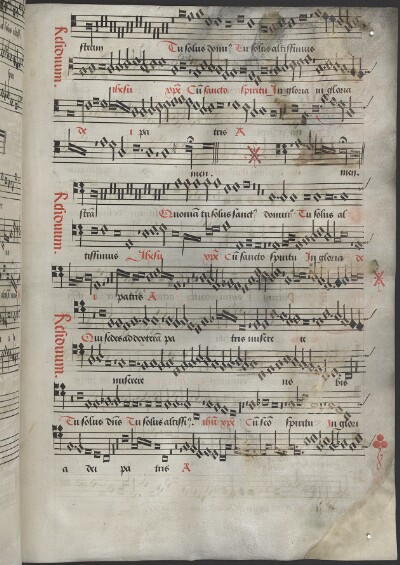 Residuum.
stram Tu solus domi' Tu solus altissimus
ihesu xpē Cū sancto spiritu In gloria in gloria
de i pa tris A
men. men.
Residuum.
strā Quoniā tu solus sanct' domin' Tu solus al
tissimus Ihesu xpē Cū sancto spiritu In gloria de
i patris A
Residuum.
Qui sedes ad dexterā pa tris misere re
miserere no bis
Tu solus dn̄s Tu solus altissi' ihū xpē Cū sc̄o spiritu In glori
a dei pa tris A